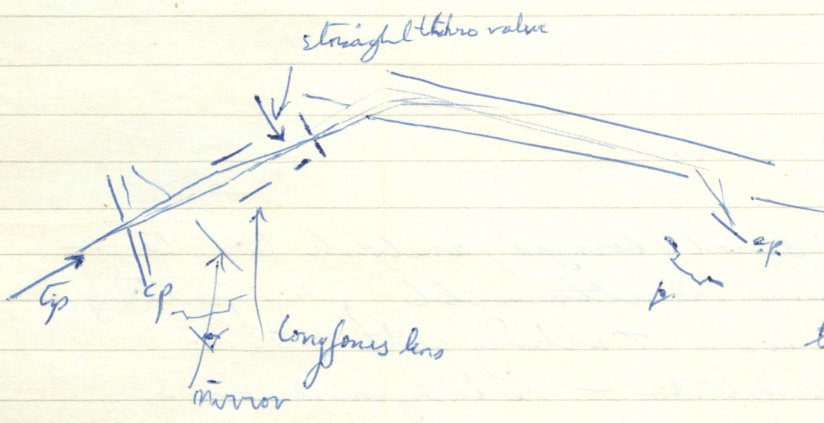 straight thro valve
tip
cp
cp.
p.
long focus lens
mirror